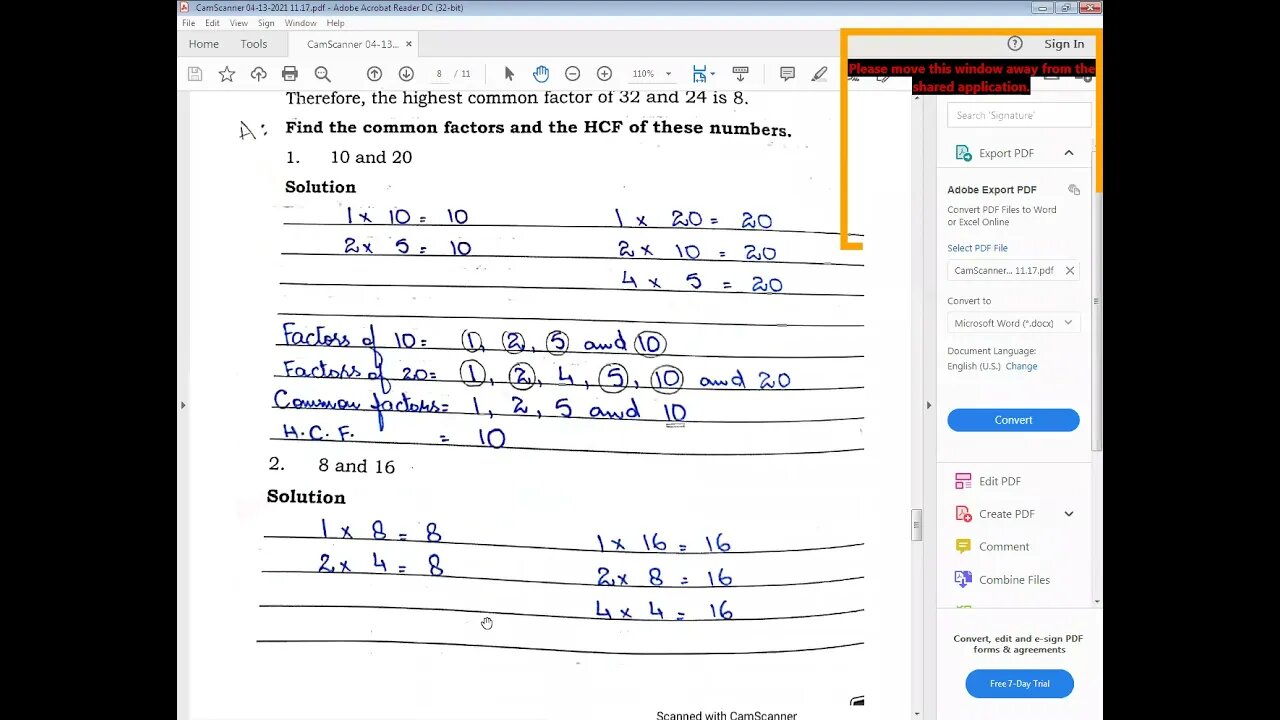 CamScanner 04-13-2021 11.17.pdf - Adobe Acrobat Reader DC (32-bit)
File Edit View Sign Window Help
Home Tools CamScanner 04-13... × ? Sign In
/ 11 110%
Please move this window away from the
shared application.
Therefore, the highest common factor of 32 and 24 is 8.
A:
Find the common factors and the HCF of these numbers.
1. 10 and 20
Solution
1 × 10 = 10 1 × 20 = 20
2 × 5 = 10 2 × 10 = 20
4 × 5 = 20
Factors of 10 = 1, 2, 5 and 10
Factors of 20 = 1, 2, 4, 5, 10 and 20
Common factors = 1, 2, 5 and 10
H.C.F. = 10
2. 8 and 16
Solution
1 × 8 = 8 1 × 16 = 16
2 × 4 = 8 2 × 8 = 16
4 × 4 = 16
Scanned with CamScanner
Search 'Signature'
Export PDF
Adobe Export PDF
Convert PDF Files to Word
or Excel Online
Select PDF File
CamScanner... 11.17.pdf ×
Convert to
Microsoft Word (*.docx)
Document Language:
English (U.S.) Change
Convert
Edit PDF
Create PDF
Comment
Combine Files
Convert, edit and e-sign PDF
forms & agreements
Free 7-Day Trial